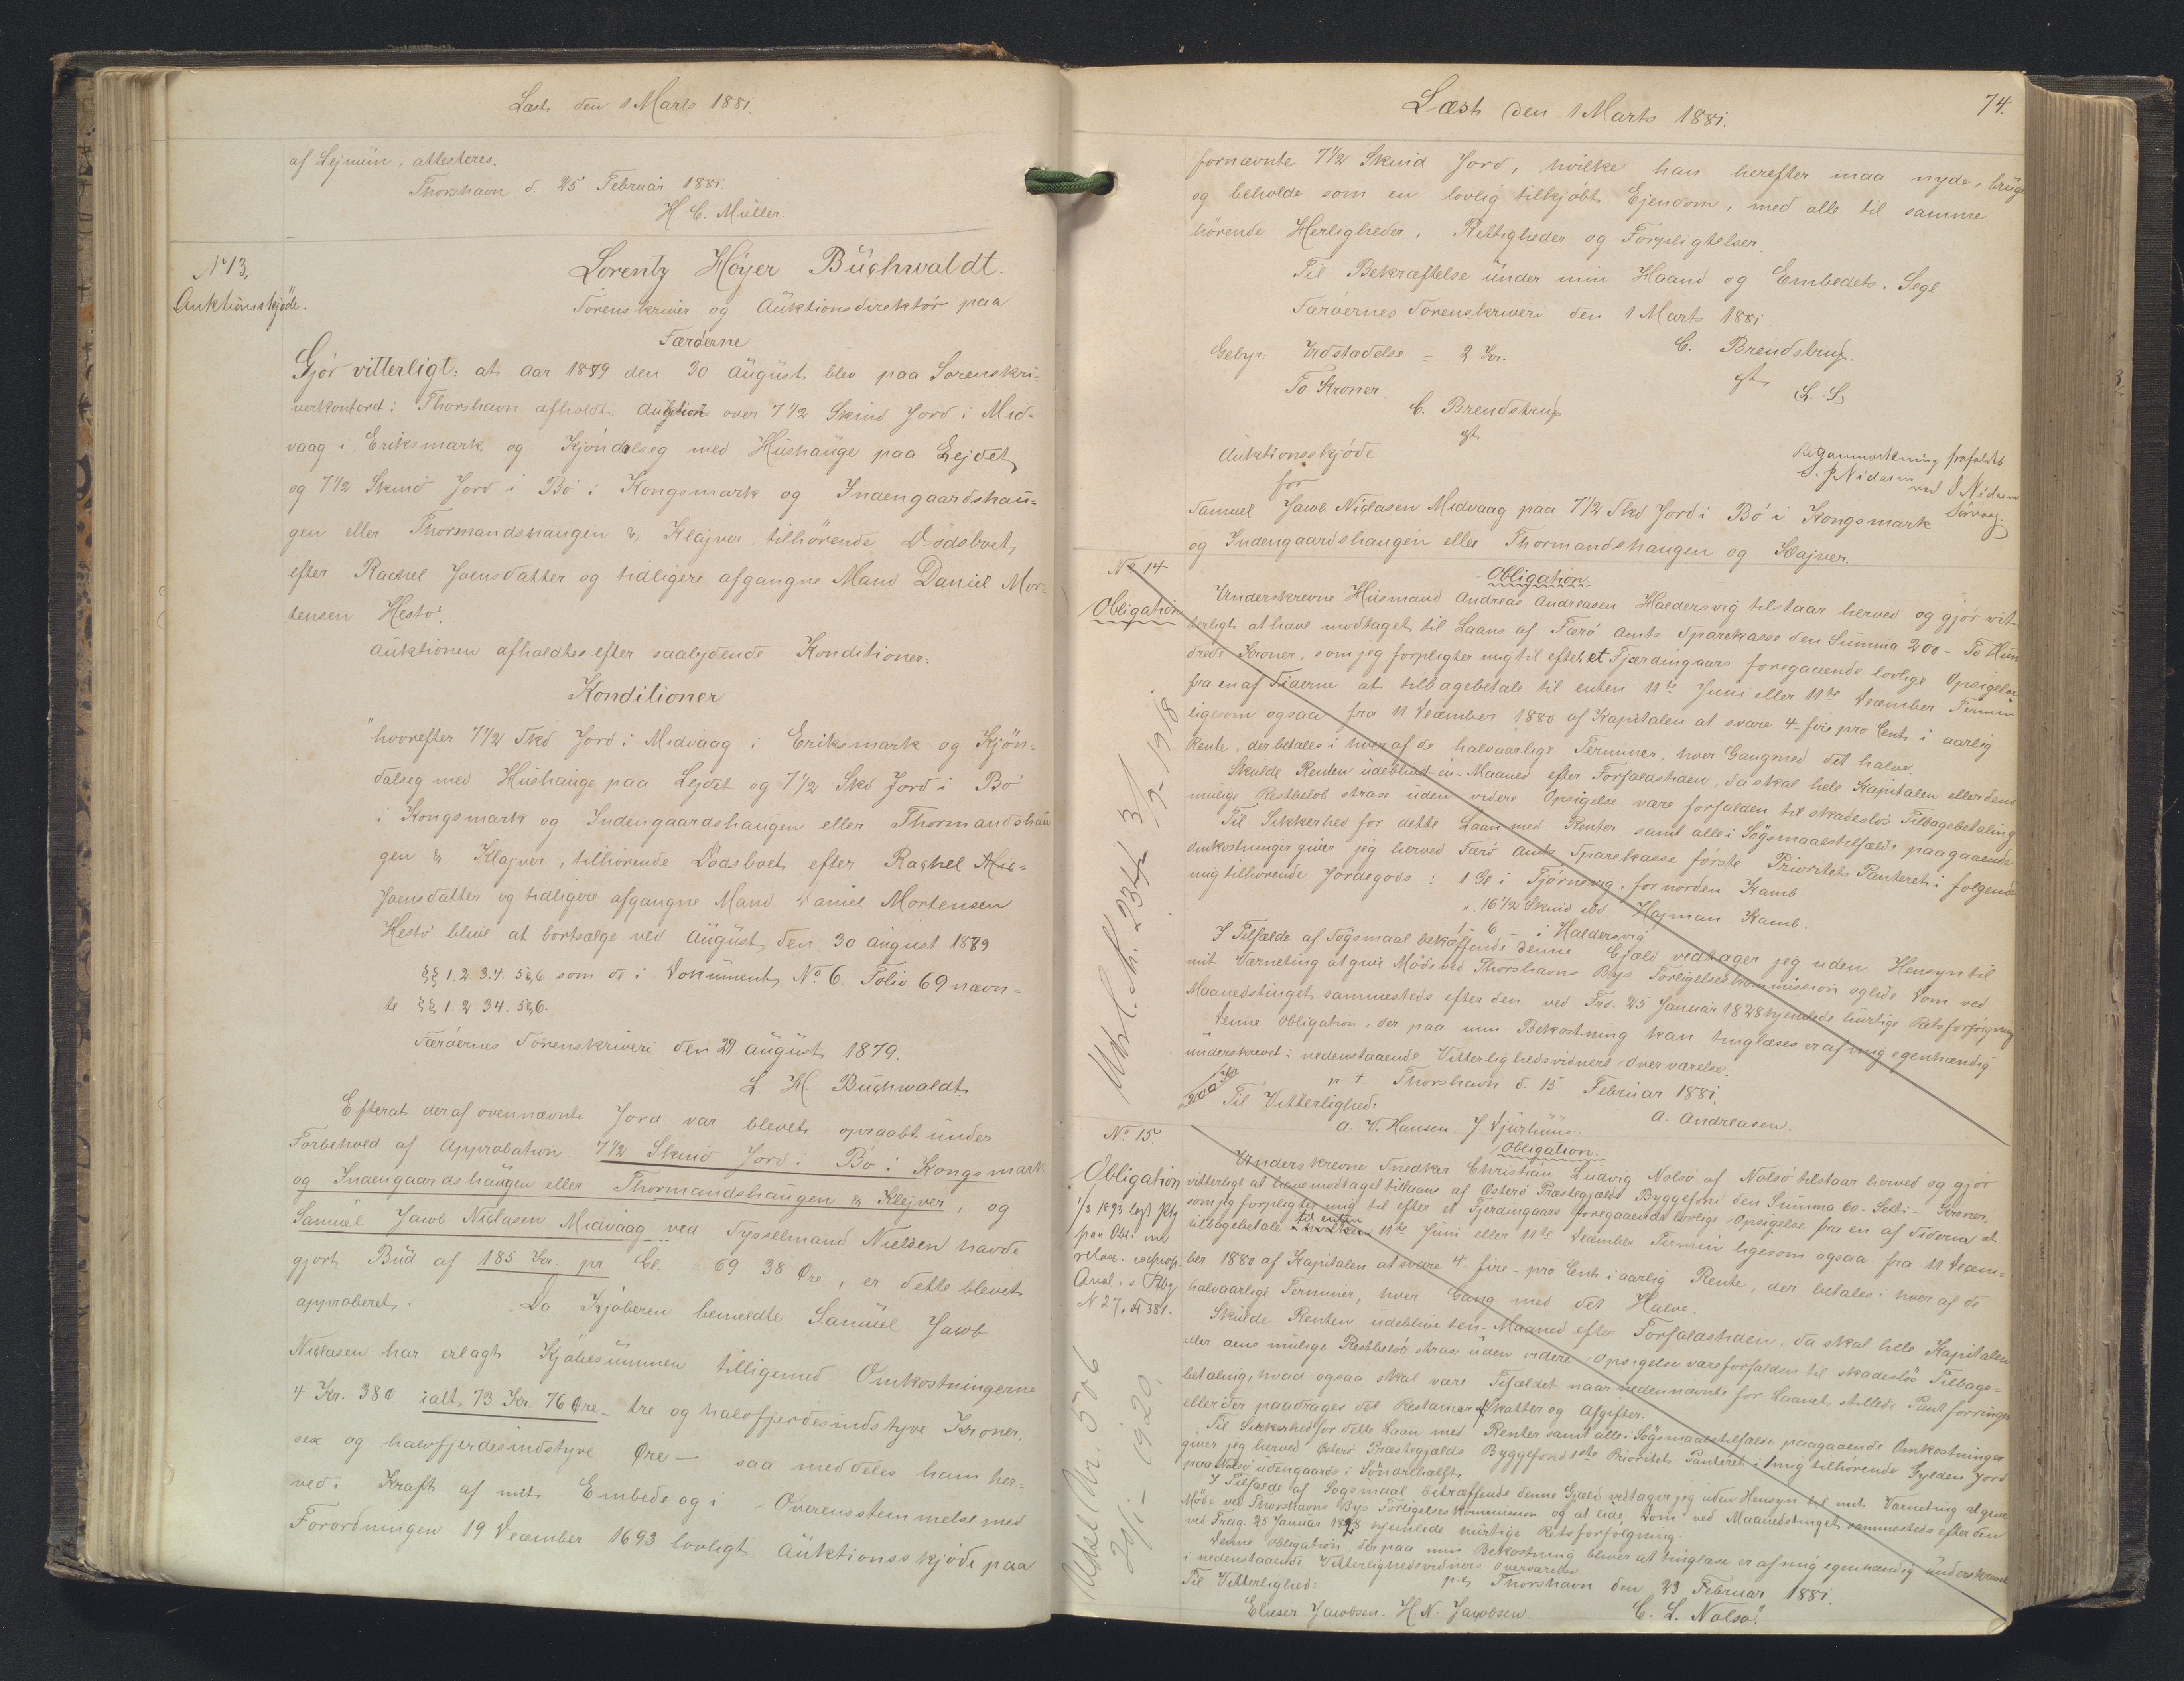 Læst den 1 Marts 1881.
af Lejmein, attesteres.
Thorshavn d. 25 Februar 1881.
H. C. Müller.
No 13,
Auktionsskjøde.
Lorentz Höyer Buchwaldt.
Sorenskriver og Auktionsdirektør paa
Færøerne
Gjør vitterligt: at Aar 1879 den 30 August blev paa Sorenskri-
verkontoret i Thorshavn afholdt Auktion over 7 1/2 Skind Jord i Mid-
vaag i Eriksmark og Kjøndalseg med Hushauge paa Lejdet
og 7 1/2 Skind Jord i Bø i Kongsmark og Indengaardshau-
gen eller Thormandshaugen & Klajver tilhørende Dødsboet
efter Rachel Joensdatter og tidligere afgangne Mand Daniel Mor-
tensen Hestø.
Auktionen afholdtes efter saalydende Konditioner:
Konditioner
"hvorefter 7 1/2 Skd Jord i Midvaag i Eriksmark og Kjøn-
dalseg med Hushauge paa Lejdet og 7 1/2 Skd Jord i Bø
i Kongsmark og Indengaardshaugen eller Thormandshau
gen & Klajver, tilhørende Dødsboet efter Rachel
Joensdatter og tidligere afgangne Mand Daniel Mortensen
Hestø blive at bortsælge ved August den 30 August 1879
§§ 1. 2. 3. 4. 5 & 6 som de i Dokument No 6 Folio 69 nævn-
te §§ 1. 2 3 4. 5 & 6.
Færøernes Sorenskriveri den 29 August 1879.
L. H. Buchwaldt.
Efterat deraf ovennævnte Jord var blevet opraabt under
Forbehold af Approbation 7 1/2 Skind Jord i Bø i Kongsmark
og Indengaardshaugen eller Thormandshaugen & Klejver, og
Samuel Jacob Niclasen Midvaag ved Sysselmand Nielsen havde
gjort Bud af 185 Kr. pr Gl. = 69 38 Øre, er dette blevet
approberet. Da Kjøberen bemeldte Samuel Jacob
Niclasen har erlagt Kjøbesummen tilligemed Omkostningerne
4 Kr. 38 Ø. ialt 73 Kr. 76 Øre - tre og halvfjerdesindstyve Kroner,
sex og halvfjerdesindstyve Øre - saa meddeles ham her-
ved i Kraft af mit Embede og i Overensstemmelse med
Forordningen 19 December 1693 lovligt Auktionsskjøde paa
Læst den 1 Marts 1881.
74.
fornævnte 7 1/2 Skind Jord, hvilke han herefter maa nyde, bruge
og beholde som en lovlig tilkjøbt Ejendom, med alle til samme
hørende Herligheder, Rettigheder og Forpligtelser.
Til Bekræftelse under min Haand og Embedets Segl
Færøernes Sorenskriveri den 1 Marts 1881.
Gebyr: Udstædelse = 2 Kr.
C. Brendstrup
To Kroner.
cst.
L. S.
C. Brendstrup
cst.
Auktionsskjøde
for
Samuel Jacob Niclasen Midvaag paa 7 1/2 Skd Jord i Bø i Kongsmark
og Indengaardshaugen eller Thormandshaugen og Klajver.
No 14
Obligation
Obligation.
Underskrevne Husmand Andreas Andreasen Haldersvig tilstaar herved og gjør vit-
terligt at have modtaget til Laans af Færø Amts Sparekasse den Summa 200 - To Hun
drede Kroner, som jeg forpligter mig til efter et Fjerdingaars foregaaende lovlige Opsigelse
fra en af Siderne at tilbagebetale til enten 11te Juni eller 11te December Termin
ligesom ogsaa fra 11 December 1880 af Kapitalen at svare 4 - fire pro Cent i aarlig
Rente, der betales i hver af de halvaarlige Terminer, hver Gang med det halve.
Skulde Renten udeblive en Maaned efter Forfaldstiden, da skal hele Kapitalen eller dens
mulige Restbeløb strax uden videre Opsigelse være forfalden til skadesløs Tilbagebetaling
Til Sikkerhed for dette Laan med Renter samt alle i Søgsmaalstilfælde paagaaende
Omkostninger giver jeg herved Færø Amts Sparekasse første Prioritets Panteret i følgende
mig tilhørende Jordegods: 1 Gl i Tjørnevig, for norden Kamb
" 16 1/2 Skind ibd Hajman Kamb.
" 6 - i Haldersvig
I Tilfælde af Søgsmaal betræffende denne Gjæld vedtager jeg uden Hensyn til
mit Værneting at give Møde ved Thorshavns Byes Forligelseskommission og lide Dom ved
Maanedstinget sammesteds efter den ved Frd. 25 Januar 1828 hjemlede hurtige Retsforfølgning
Denne Obligation, der paa min Bekostning kan tinglæses er af mig egenhændig
underskrevet i nedenstaaende Vitterlighedsvidners Overværelse.
p. t. Thorshavn d. 15 Februar 1881.
200 Kr
Til Vitterlighed:
A. Andreasen.
A. V. Hansen J Djurhuus.
Udsl. A. No. 234
3/7 - 1918
No 15.
Obligation
Obligation.
Underskrevne Snedker Christian Ludvig Nolsø af Nolsø tilstaar herved og gjør
vitterligt at have modtaget tillaans af Østerø Præstegjælds Byggefond den Summa 60 - Sexti - Kroner,
som jeg forpligter mig til efter et Fjerdingaars foregaaende lovlige Opsigelse fra en af Siderne at
tilbagebetale til enten 11te Juni eller 11te December Termin ligesom ogsaa fra 11 Decem-
ber 1880 af Kapitalen at svare 4 - fire - pro Cent i aarlig Rente, der betales i hver af de
halvaarlige Terminer, hver Gang med det Halve.
Skulde Renten udeblive 1 en - Maaned efter Forfaldstiden, da skal hele Kapitalen
eller dens mulige Restbeløb strax uden videre Opsigelse være forfalden til skadesløs Tilbage-
betaling, hvad ogsaa skal være Tilfældet naar nedennævnte for Laanet stillede Pant forringes
eller der paadrages det Restancer af Skatter og Afgifter.
Til Sikkerhed for dette Laan med Renter samt alle i Søgsmaalstilfælde paagaaende Omkostninger
giver jeg herved Østerø Præstegjælds Byggefond 1ste Prioritets Panteret i 1 mig tilhørende Gylden Jord
paa Nolsø udengaards i Søndrehælft.
I Tilfælde af Søgsmaal betræffende denne Gjæld vedtager jeg uden Hensyn til mit Værneting at give
Møde ved Thorshavns Byes Forligelseskommission og at lide Dom ved Maanedstinget sammesteds efter den
ved Frdg. 25 Januar 1828 hjemlede hurtige Retsforfølgning.
Denne Obligation, der paa min Bekostning bliver at tinglæse er af mig egenhændig underskrevet
i nedenstaaende Vitterlighedsvidners Overværelse.
p. t. Thorshavn den 23 Februar 1881.
Til Vitterlighed:
Elieser Jacobsen. H. N. Jacobsen.
C. L. Nolsø.
Udsl. No. 506
20/1 - 1920.